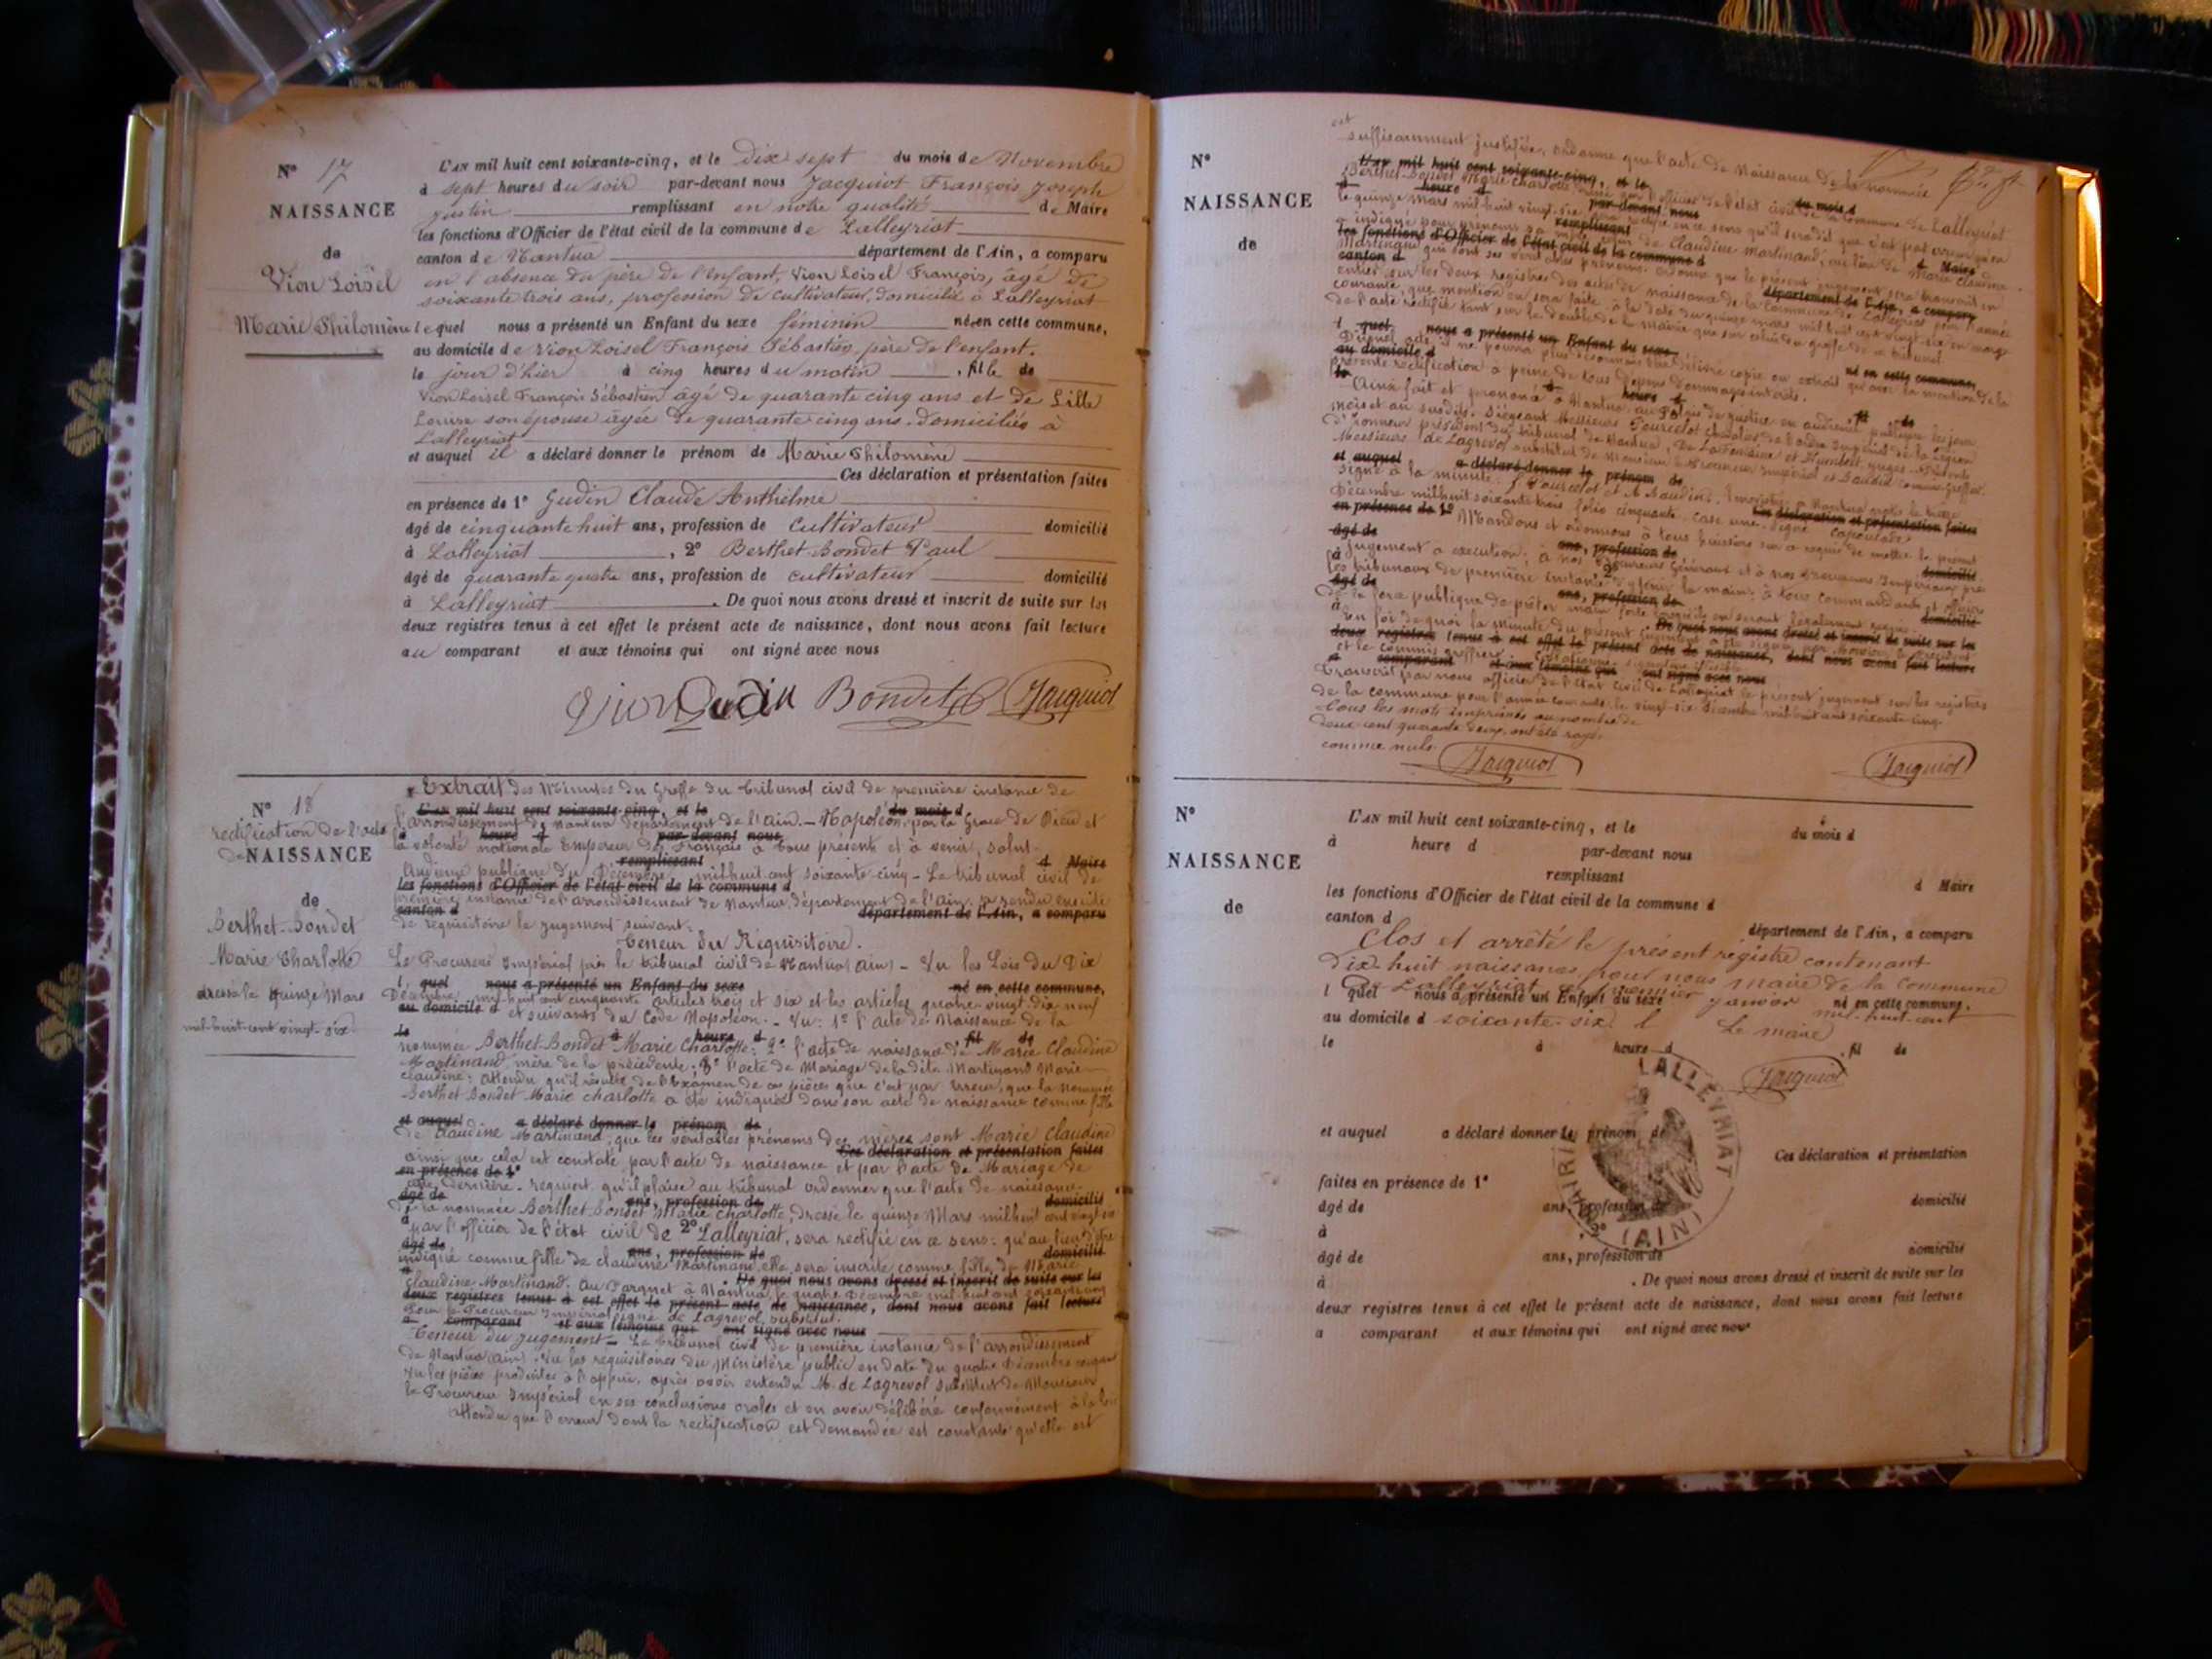 N° 17
NAISSANCE
de
Vion Loisel
Marie Philomène
L'AN mil huit cent soixante-cinq, et le Dix sept du mois de Novembre
à sept heures du soir par-devant nous Jacquiot François Joseph
Justin remplissant en notre qualité de Maire
les fonctions d'Officier de l'état civil de la commune de Lalleyriat
canton de Nantua département de l'Ain, a comparu
en l'absence du père de l'enfant, Vion Loisel François, âgé de
soixante trois ans, profession de cultivateur, domicilié à Lalleyriat
lequel nous a présenté un Enfant du sexe féminin né en cette commune,
au domicile de Vion Loisel François Sébastien, père de l'enfant.
le jour d'hier à cinq heures du matin, fille de
Vion Loisel François Sébastien âgé de quarante cinq ans et de Lille
Louise son épouse âgée de quarante cinq ans. domiciliés à
Lalleyriat
et auquel il a déclaré donner le prénom de Marie Philomène
Ces déclaration et présentation faites
en présence de 1° Gudin Claude Anthelme
âgé de cinquante huit ans, profession de cultivateur domicilié
à Lalleyriat, 2° Berthet-Bondet Paul
âgé de quarante quatre ans, profession de cultivateur domicilié
à Lalleyriat. De quoi nous avons dressé et inscrit de suite sur les
deux registres tenus à cet effet le présent acte de naissance, dont nous avons fait lecture
au comparant et aux témoins qui ont signé avec nous
Vion Gudin Bondet Jacquiot
N° 18
rectification de l'acte
de NAISSANCE
de
Berthet-Bondet
Marie Charlotte
dressé le quinze Mars
mil-huit-cent vingt-six
Extrait des Minutes du Greffe du Tribunal civil de première instance de
L'AN mil huit cent soixante-cinq, et le du mois d
l'arrondissement de Nantua département de l'Ain. — Napoléon, par la Grace de Dieu et
à heure d par-devant nous
la volonté nationale Empereur des Français à tous présents et à venir, salut.
remplissant d Maire
Audience publique du Décembre mil huit cent soixante-cinq — Le tribunal civil de
les fonctions d'Officier de l'état civil de la commune d
première instance de l'arrondissement de Nantua, département de l'Ain, a rendu ensuite
canton d département de l'Ain, a comparu
de réquisitoire le jugement suivant:
Teneur du Réquisitoire.
Le Procureur Impérial près le tribunal civil de Nantua (Ain) — Vu les Lois du Dix
l quel nous a présenté un Enfant du sexe né en cette commune,
Décembre mil-huit cent cinquante articles trois et six et les articles quatre-vingt dix-neuf
au domicile d
et suivants du Code Napoléon. — Vu: 1° l'acte de Naissance de la
le à heure d fil de
nommée Berthet-Bondet Marie Charlotte; 2° l'acte de naissance de Marie Claudine
Martinand, mère de la précédente; 3° l'acte de Mariage de la dite Martinand Marie
Claudine; Attendu qu'il résulte de l'Examen de ces pièces que c'est par erreur, que la nommée
Berthet Bondet Marie Charlotte a été indiquée dans son acte de naissance comme fille
et auquel a déclaré donner le prénom de
de Claudine Martinand; que les véritables prénoms des mères sont Marie Claudine
Ces déclaration et présentation faites
ainsi que cela est constaté par l'acte de naissance et par l'acte de Mariage de
en présence de 1°
cette dernière. requiert qu'il plaise au tribunal ordonner que l'acte de naissance
âgé de ans, profession de domicilié
de la nommée Berthet Bondet Marie Charlotte, dressé le quinze Mars mil huit cent vingt six
à 2°
par l'officier de l'état civil de Lalleyriat, sera rectifié en ce sens: qu'au lieu d'être
âgé de ans, profession de domicilié
indiqué comme fille de Claudine Martinand, elle sera inscrite comme fille de Marie
à De quoi nous avons dressé et inscrit de suite sur les
Claudine Martinand. Au Parquet à Nantua, le quatre Décembre mil-huit cent soixante cinq
deux registres tenus à cet effet le présent acte de naissance, dont nous avons fait lecture
Pour le Procureur Impérial signé de Lagrevol, substitut.
a comparant et aux témoins qui ont signé avec nous
Teneur du jugement — Le tribunal civil de première instance de l'arrondissement
de Nantua (Ain), Vu les requisitoires du Ministère public en date du quatre Décembre
Vu les pièces produites à l'appui, après avoir entendu M. de Lagrevol substitut de Monsieur
le Procureur Impérial en ses conclusions orales et en avoir délibéré conformément à la loi
Attendu que l'erreur dont la rectification est demandée est constante qu'elle est
N°
NAISSANCE
de
est
suffisamment justifiée, ordonne que l'acte de Naissance de la nommée
L'AN mil huit cent soixante-cinq, et le du mois d
Berthet-Bondet Marie Charlotte dressé par l'officier de l'état civil de la commune de Lalleyriat
à heure d par-devant nous
le quinze mars mil-huit vingt-six sera rectifié en ce sens qu'il sera dit que c'est par erreur qu'on
remplissant
a indiqué pour prénoms de Claudine Martinand, au lieu de Marie Claudine
les fonctions d'Officier de l'état civil de la commune d d Maire
Martinand qui sont ses véritables prénoms. ordonne que le présent jugement sera transcrit en
canton d département de l'Ain, a comparu
entier sur les deux registres des actes de naissance de la commune de Lalleyriat pour l'année
courante, que mention en sera faite à la date du quinze mars mil huit cent vingt-six en marge
de l'acte rectifié tant sur le double de la mairie que sur celui du greffe de ce tribunal.
l quel nous a présenté un Enfant du sexe né en cette commune,
Duquel acte il ne pourra plus désormais être délivré copie ou extrait qu'avec la mention de la
au domicile d
présente rectification a peine de tous dépens dommages intérêts.
le à heure d fil de
Ainsi fait et prononcé à Nantua au Palais de justice en audience publique les jour
mois et an susdits. Siégeant Messieurs Pourcelot chevalier de l'ordre Impérial de la Légion
d'honneur président du tribunal de Nantua, de Lafontaine et Humbert, juges
Messieurs de Lagrevol substitut de Monsieur le Procureur Impérial et Baudin commis-greffier.
et auquel a déclaré donner le prénom de
signé à la minute: J. Pourcelot et A. Baudin. Enregistré à Nantua
Ces déclaration et présentation faites
Décembre mil huit soixante trois folio cinquante, case une. Signé
en présence de 1°
Mandons et ordonnons à tous huissiers sur ce requis de mettre le présent
âgé de ans, profession de domicilié
jugement a execution; à nos Procureurs Généraux et à nos Procureurs Impériaux près
à 2°
les tribunaux de première instance d'y tenir la main; à tous commandants et officiers
âgé de ans, profession de domicilié
de la force publique de prêter main forte lorsqu'ils en seront légalement requis.
à De quoi nous avons dressé et inscrit de suite sur les
En foi de quoi la minute du présent jugement a été signée par Monsieur le président
deux registres tenus à cet effet le présent acte de naissance, dont nous avons fait lecture
et le commis greffier.
a comparant et aux témoins qui ont signé avec nous
Transcrit par nous officier de l'état civil de Lalleyriat le présent jugement sur les registres
de la commune pour l'année courante, le vingt-six Décembre mil huit cent soixante-cinq.
Tous les mots imprimés au nombre de
deux cent quarante deux, ont été rayés
comme nuls.
Jacquiot Jacquiot
N°
NAISSANCE
de
L'AN mil huit cent soixante-cinq, et le du mois d
à heure d par-devant nous
remplissant d Maire
les fonctions d'Officier de l'état civil de la commune d
canton d département de l'Ain, a comparu
Clos et arrêté le présent régistre contenant
Dix-huit naissances, pour nous maire de la commune
De Lalleyriat, le premier janvier mil-huit-cent
l quel nous a présenté un Enfant du sexe né en cette commune.
au domicile d
soixante-six. Le maire
le à heure d fil de
Jacquiot
MAIRIE LALLEYRIAT (AIN)
et auquel a déclaré donner le prénom de
Ces déclaration et présentation
faites en présence de 1°
âgé de ans, profession de domicilié
à , 2°
âgé de ans, profession de domicilié
à . De quoi nous avons dressé et inscrit de suite sur les
deux registres tenus à cet effet le présent acte de naissance, dont nous avons fait lecture
a comparant et aux témoins qui ont signé avec nous